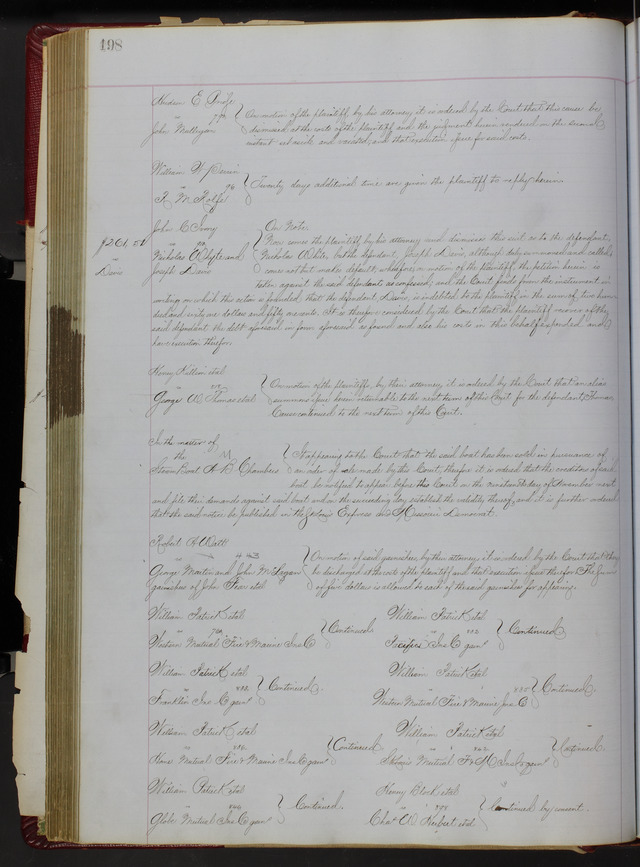 498
John Mulligan
On motion of the plaintiff, by his attorney, it is ordered by the Court that this cause be
dismissed, at the costs of the plaintiff, and the judgment herein rendered in the
instant set aside and vacated, and that execution issue for said costs.
William W
R. M. Rolfe
Twenty days additional time are given the plaintiff to reply herein.
John C Ivory
On Note
$261.51
Nicholas White and
Joseph Davis
Davis
Now comes the plaintiff by his attorney and dismisses this suit as to the defendant,
Nicholas White, but the defendant, Joseph Davis, although duly summoned and called,
comes not but makes default; wherefore, on motion of the plaintiff, the petition herein is
taken against the said defendant as confessed; and the Court finds from the instrument in
writing on which this action is founded, that the defendant Davis, is indebted to the plaintiff in the sum of two hun-
dred and sixty one dollars and fifty one cents. It is therefore considered by the Court that the plaintiff recover of the
said defendant the debt aforesaid in form aforesaid as found and also his costs in this behalf expended and
have execution therefor.
Henry etal
George W. Thomas etal
On motion of the plaintiffs, by their attorney, it is ordered by the Court that an alias
summons issue herein returnable to the next term of this Court for the defendant Thomas
Cause continued to the next term of this Court.
In the matter of
the
Steam Boat A B Chambers
It appearing to the Court that the said boat has been sold in pursuance of
an order of sale made by this Court, therefore it is ordered that the creditors of said
boat be notified to appear before this Court on the nineteenth day of November next
and file their demands against said boat and on the succeeding day establish the validity thereof, and it is further ordered
that the said notice be published in the Missouri Democrat.
Robert A Watt
443
George Martin and John M
garnishees of John etal
On motion of said garnishees, by their attorney, it is ordered by the Court that they
be discharged at the costs of the plaintiff and that execution issue therefor. The sum
of five dollars is allowed to each of the said garnishees for appearing.
William Patrick etal
Western Mutual Fire & Marine Ins Co
Continued.
William Patrick etal
Pacific Ins Co garn
Continued
William Patrick etal
Franklin Ins Co garn
Continued.
William Patrick etal
Western Mutual Fire & Marine Ins Co
Continued
William Patrick etal
Home Mutual Fire & Marine Ins Co garn
Continued
William Patrick etal
St Louis Mutual F & M Ins Co garn
Continued.
William Patrick etal
Globe Mutual Ins Co garn
Continued.
Henry Block etal
Chas W etal
Continued by consent.